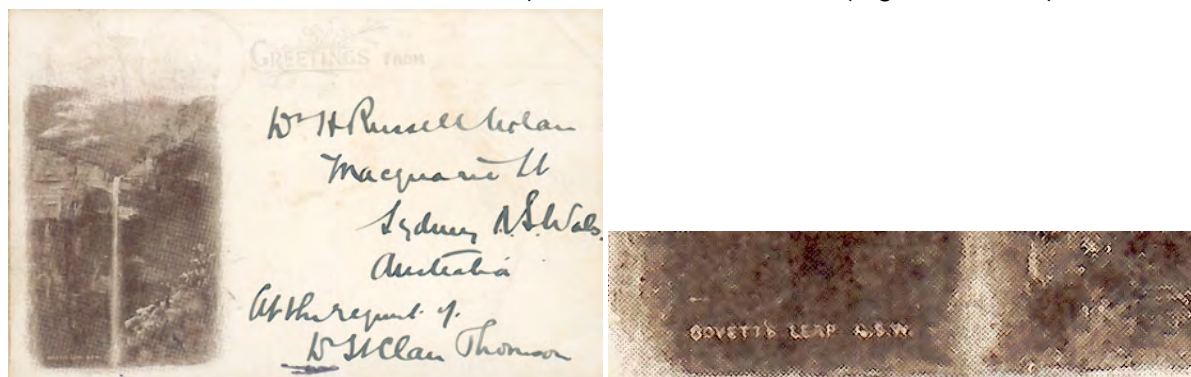 GREETINGS FROM
Dr H Russell Nolan
Macquarie St
Sydney N.S. Wales
Australia
At the request of
Dr StClair Thomson
GOVETT'S LEAP N.S.W.